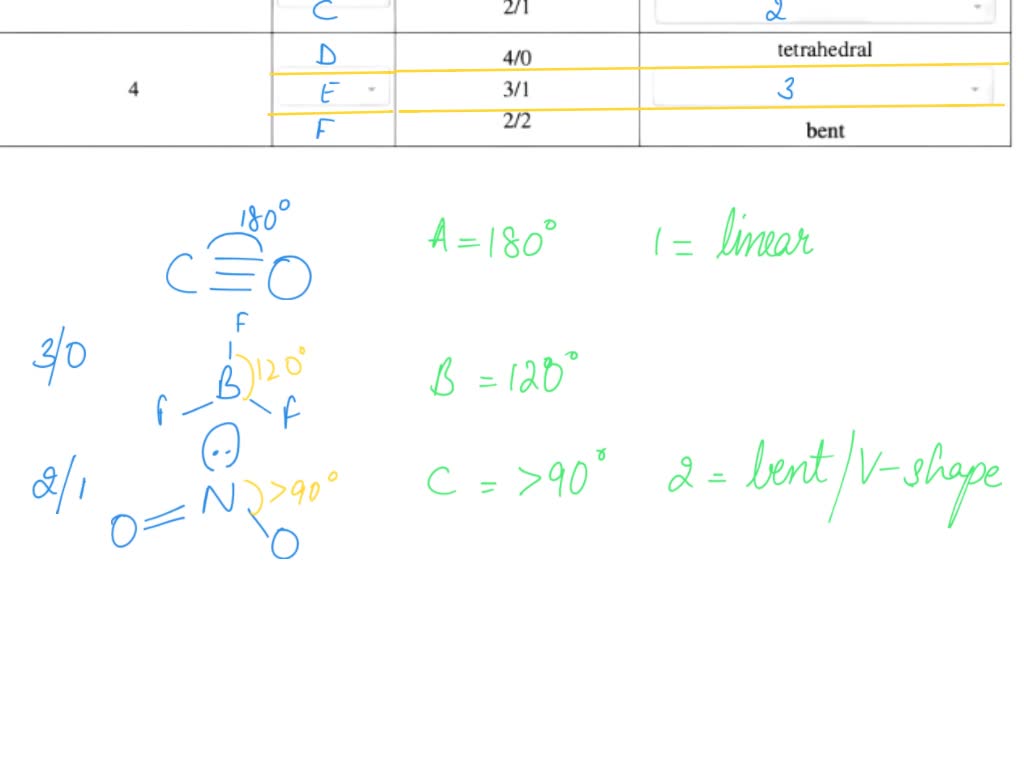 C 2/1 2
D 4/0 tetrahedral
4 E 3/1 3
F 2/2 bent
180°
C≡O A = 180° 1 = linear
F
3/0 B 120° B = 120°
F F
··
2/1 N >90° C = >90° 2 = bent/V-shape
O= O